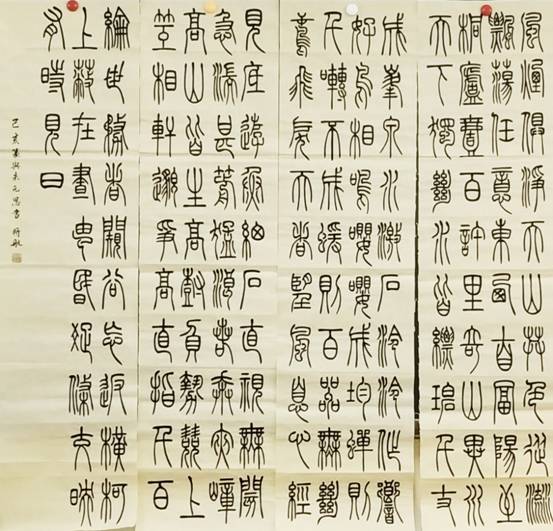 風煙俱淨天山共色從流
飄蕩任意東西自富陽至
桐廬壹百許里奇山異水
天下獨絕水皆縹碧千丈
成峯泉水激石泠泠作響
好鳥相鳴嚶嚶成韻蟬則
千囀不窮猿則百叫無絕
鳶飛戾天者望風息心經
見底游魚細石直視無礙
急湍甚箭猛浪若奔夾嶂
高山皆生寒樹負勢競上
互相軒邈爭高直指千百
綸世務者闚谷忘返橫柯
上蔽在晝猶昏疏條交映
有時見日
己亥書與朱元思書